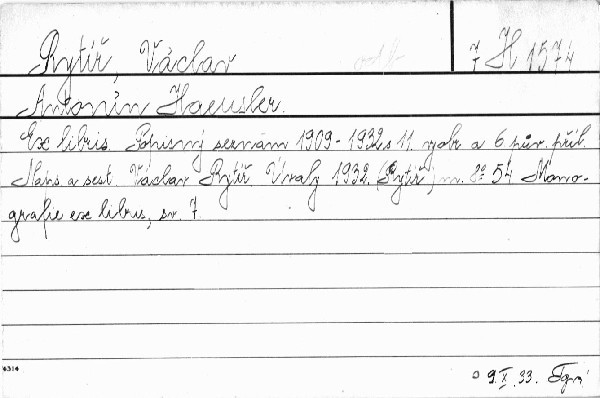 Rytíř, Václav 7 H 1574
Antonín Haeusler.
Ex libris. Popisný seznam 1909-1932 s 11 vyobr. a 6 pův. příl.
Naps. a sest. Václav Rytíř. Úvaly 1932. (Rytíř) m. 8° 54 Mono-
grafie ex libris, sv. 7.
4314
9.X.33.